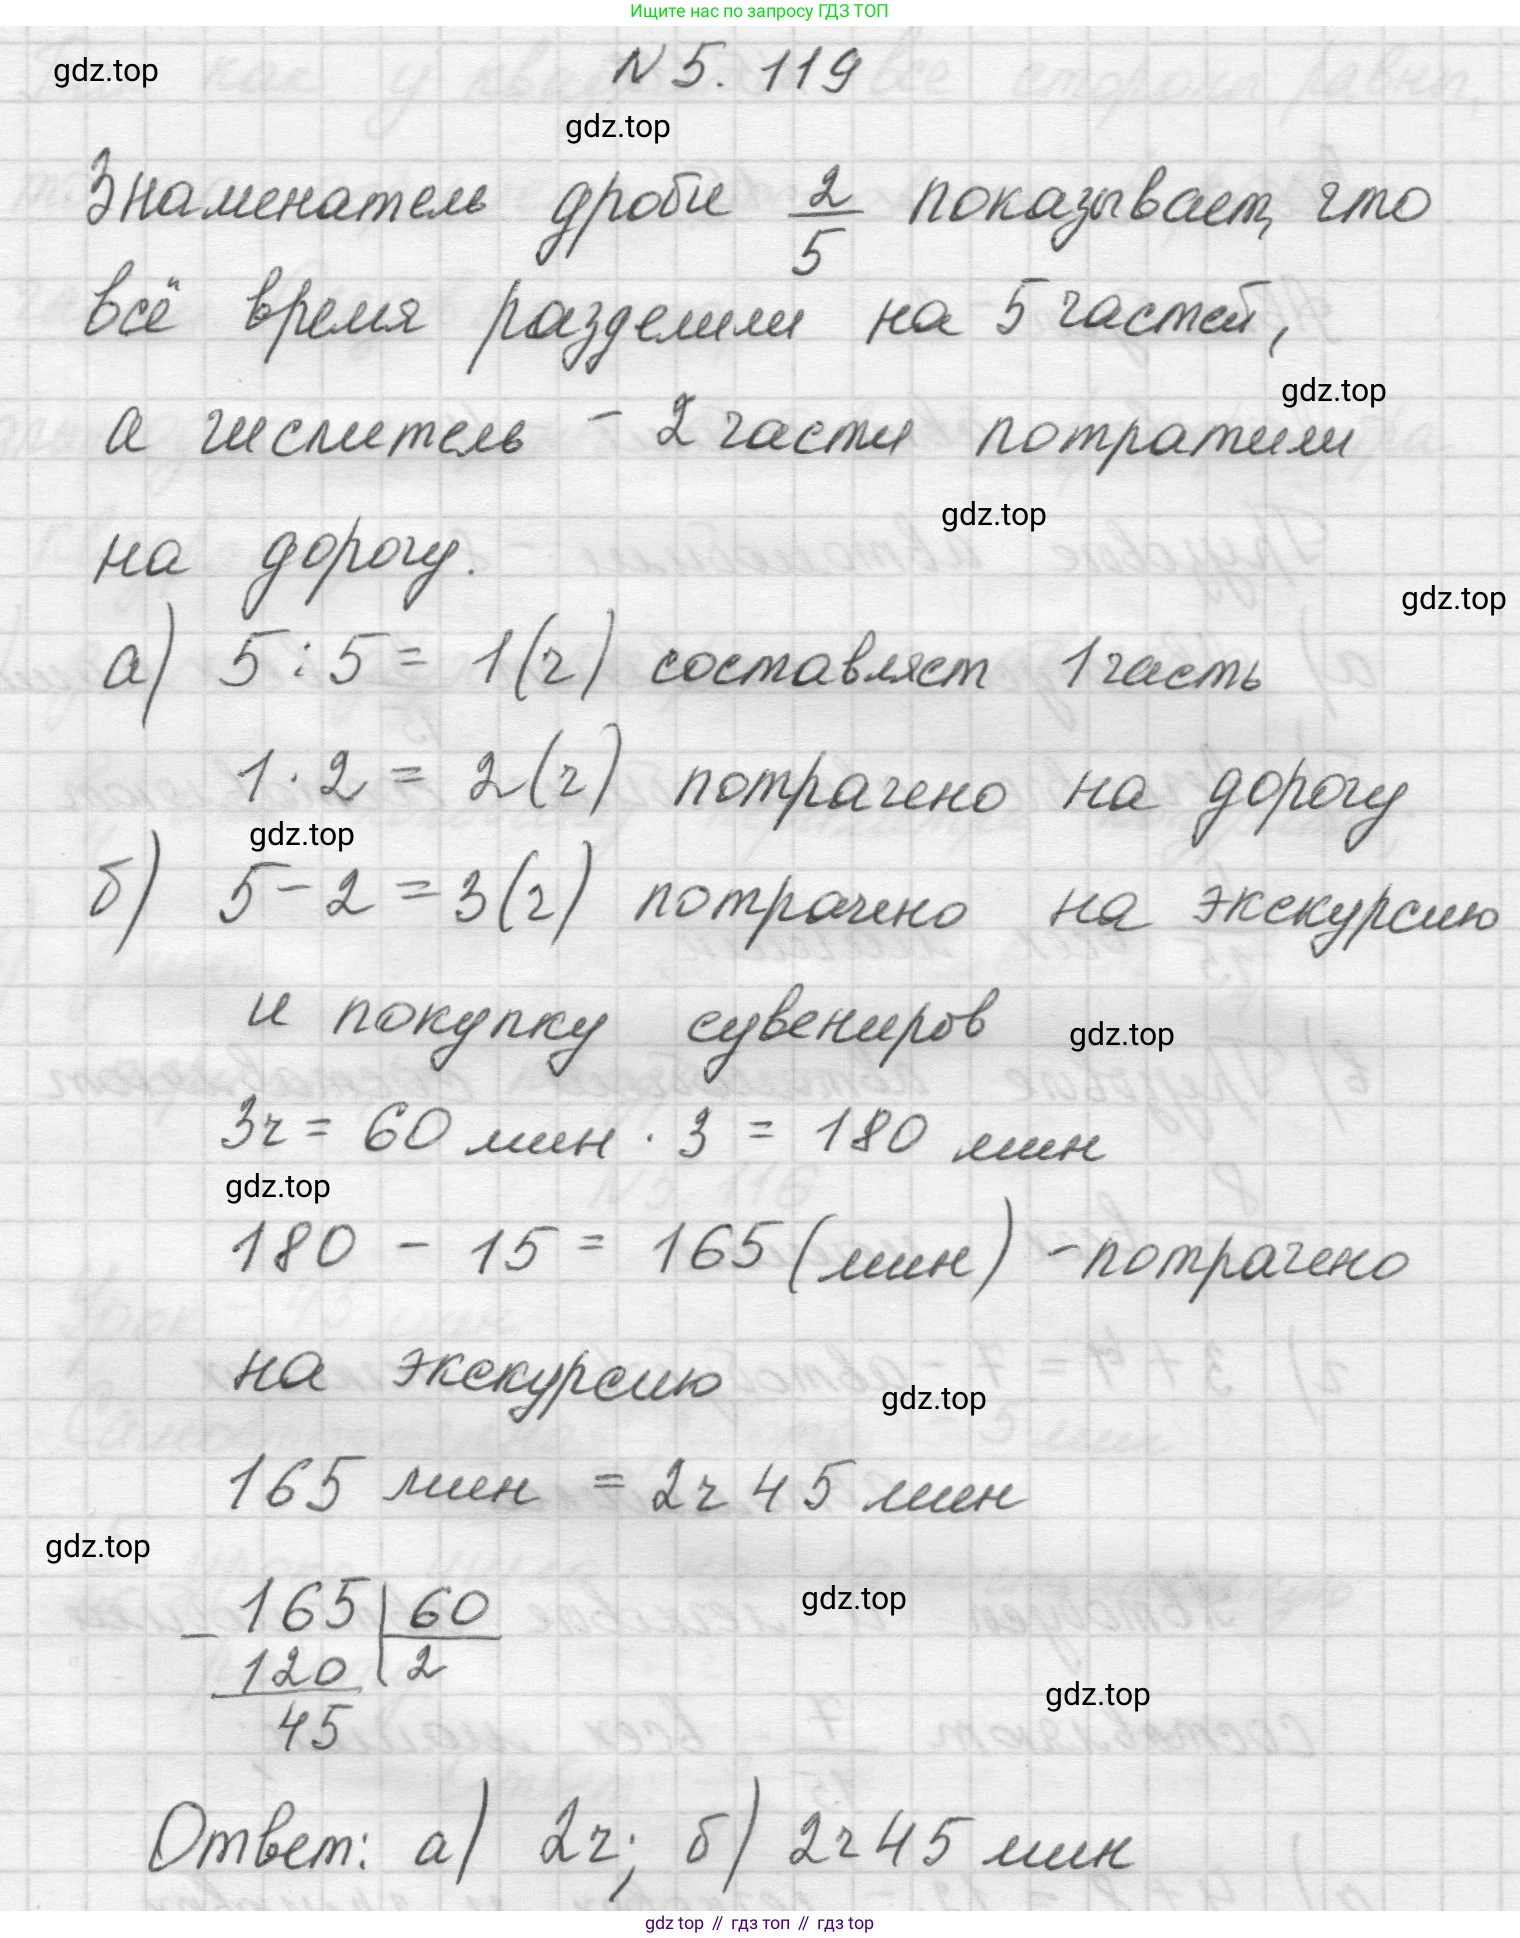 Ищите нас по запросу ГДЗ ТОП
N 5. 119
gdz.top
gdz.top
Знаменатель дроби 2/5 показывает, что
всё время разделили на 5 частей,
gdz.top
а числитель - 2 части потратили
gdz.top
на дорогу.
gdz.top
а) 5 : 5 = 1 (ч) составляет 1 часть
1 · 2 = 2 (ч) потрачено на дорогу
gdz.top
б) 5 - 2 = 3 (ч) потрачено на экскурсию
и покупку сувениров
gdz.top
3ч = 60 мин · 3 = 180 мин
gdz.top
180 - 15 = 165 (мин) - потрачено
на экскурсию
gdz.top
165 мин = 2ч 45 мин
gdz.top
gdz.top
- 165 | 60
120 | 2
45
gdz.top
Ответ: а) 2ч; б) 2ч 45 мин
gdz top // гдз топ // гдз top